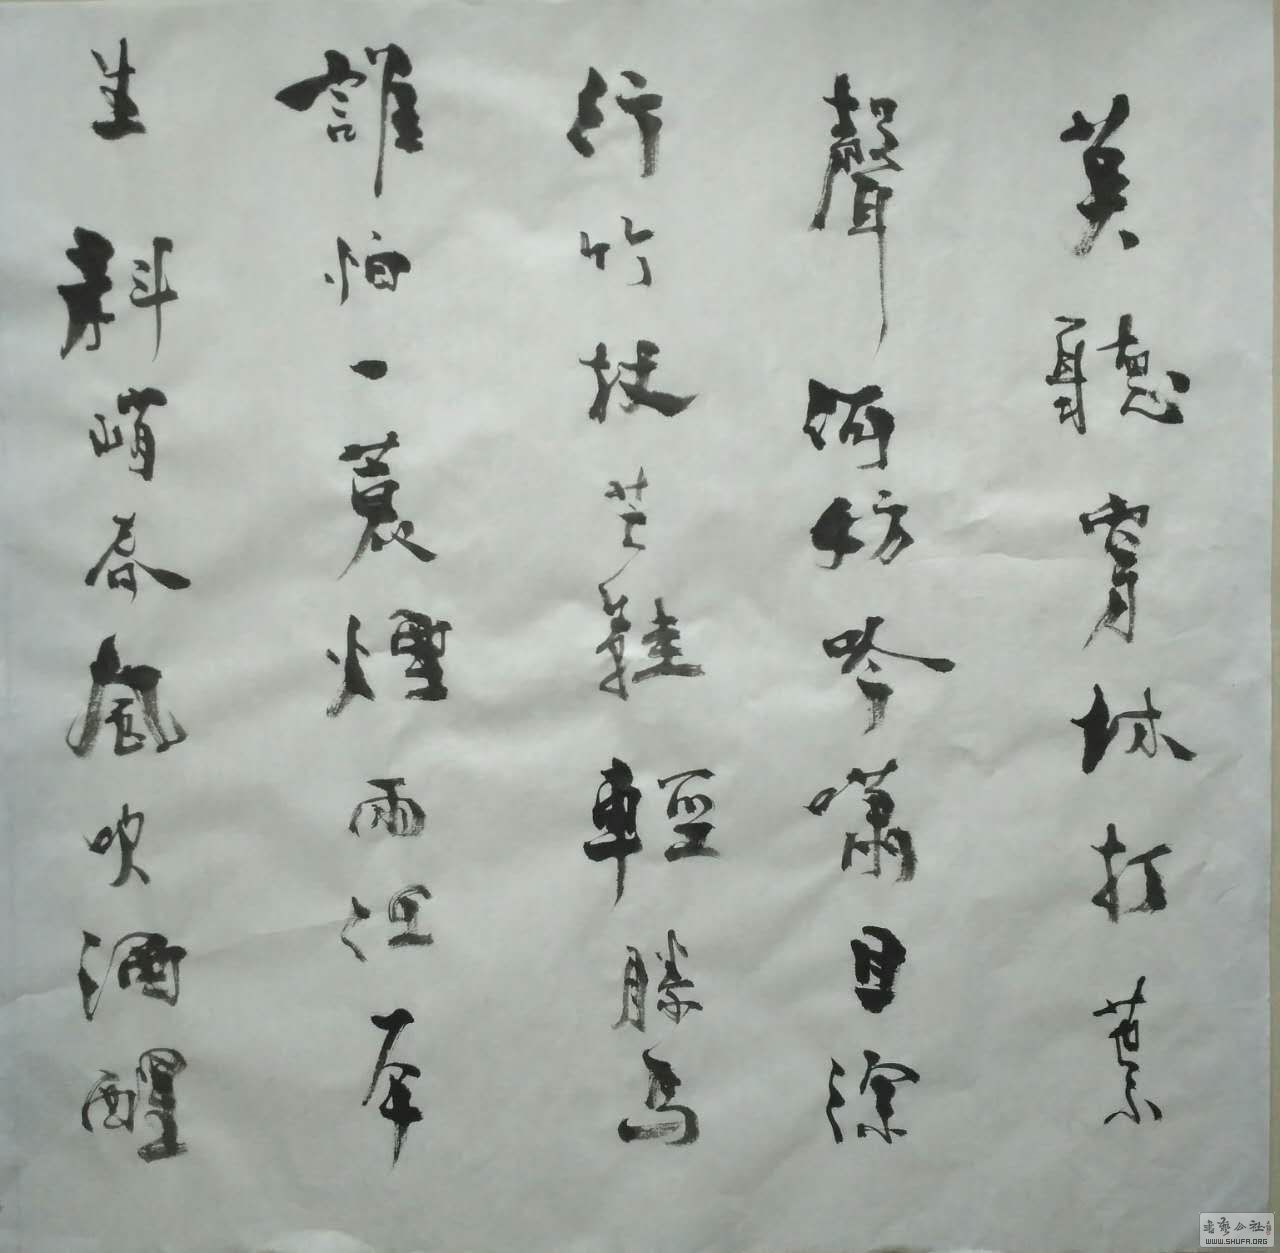 莫聽穿林打葉
聲何妨吟嘯且徐
行竹杖芒鞋輕勝馬
誰怕一蓑煙雨任平
生料峭春風吹酒醒
書藝公社
WWW.SHUFA.ORG